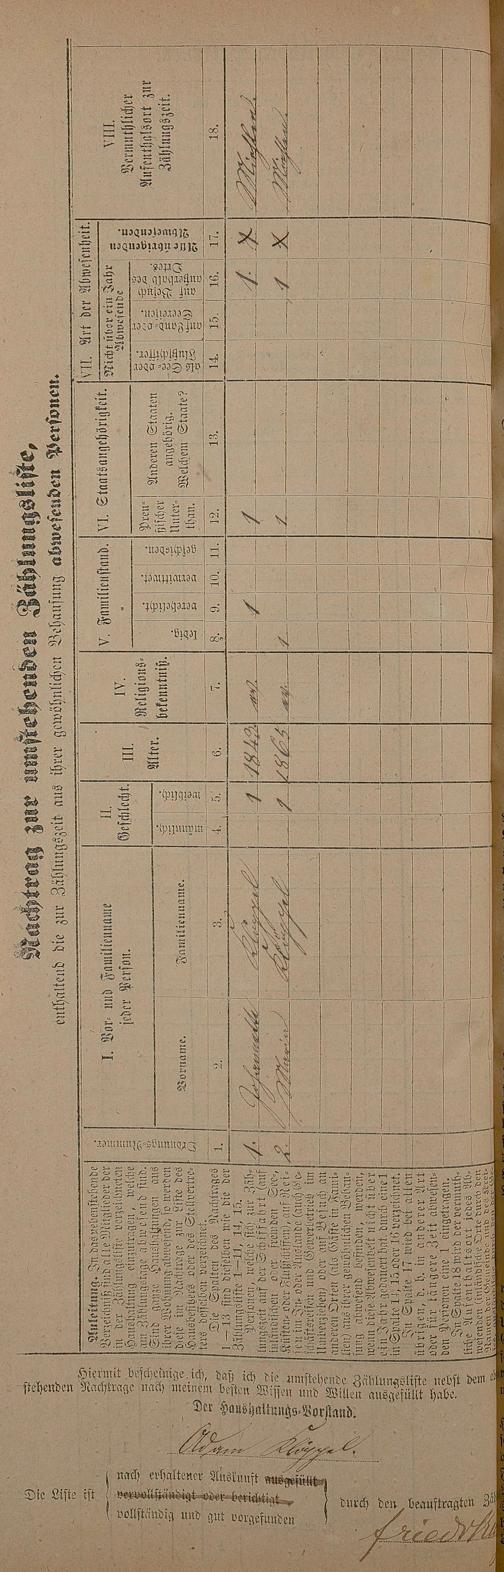 Nachtrag zur umstehenden Zählungsliste,
enthaltend die zur Zählungszeit aus ihrer gewöhnlichen Behausung abwesenden Personen.
Anleitung. In das nebenstehende
Verzeichniß sind alle Mitglieder der
in der Zählungsliste verzeichneten
Haushaltung einzutragen, welche
am Zählungstage abwesend sind.
Sind ganze Haushaltungen aus
ihrer Wohnung abwesend, so werden
diese im Nachtrage zur Liste des
Hausbesitzers oder des Stellvertre-
ters desselben verzeichnet.
Die Spalten des Nachtrages
1—13 sind dieselben wie die der
Zählungsliste 1—11, 14, 15.
Personen, welche sich zur Zäh-
lungszeit auf der Schifffahrt (auf
inländischen oder fremden See-,
Küsten- oder Flußschiffen), auf Rei-
sen im In- oder Auslande (auch Ge-
schäftsreisen und Gewerbebetrieb im
Umherziehen) oder auf Besuch an
anderen Orten (als Gäste in Fami-
lien) aus ihrer gewöhnlichen Behau-
sung abwesend befinden, werden,
wenn diese Abwesenheit nicht über
ein Jahr gedauert hat, durch eine 1
in Spalte 14, 15 oder 16 verzeichnet.
In Spalte 17 wird bei allen
übrigen, d. h. auf andere Art
oder für längere Zeit abwesen-
den Personen eine 1 eingetragen.
In Spalte 18 wird der vermuth-
liche Aufenthaltsort jedes Ab-
wesenden
Ordnungs-Nummer.
I. Vor- und Familienname
jeder Person.
Vorname.
Familienname.
II.
Geschlecht.
männlich.
weiblich.
III.
Alter.
IV.
Religions-
bekenntniß.
V. Familienstand.
ledig.
verehelicht.
verwittwet.
geschieden.
VI. Staatsangehörigkeit.
Preu-
ßischer
Unter-
than.
Anderen Staaten
angehörig.
Welchem Staate?
VII. Art der Abwesenheit.
Nicht über ein Jahr
Abwesende
als See- oder
Flußschiffer.
auf Land- oder
Seereisen.
auf Besuch
außerhalb des
Ortes.
Alle übrigen
Abwesenden.
VIII.
Vermuthlicher
Aufenthaltsort zur
Zählungszeit.
1. 2. 3. 4. 5. 6. 7. 8. 9. 10. 11. 12. 13. 14. 15. 16. 17. 18.
1. Johannette Klöppel 1 1843 ev. 1 1 1. X
2. Maria Klöppel 1 1865 ev. 1 1. 1 X
Hiermit bescheinige ich, daß ich die umstehende Zählungsliste nebst dem
stehenden Nachtrage nach meinem besten Wissen und Willen ausgefüllt habe.
Der Haushaltungs-Vorstand.
Adam Klöppel.
Die Liste ist
nach erhaltener Auskunft ausgefüllt
vervollständigt oder berichtigt
vollständig und gut vorgefunden
durch den beauftragten